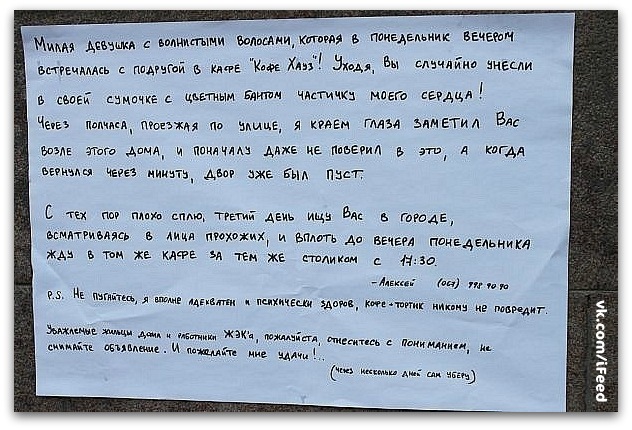 Милая девушка с волнистыми волосами, которая в понедельник вечером
встречалась с подругой в кафе "Кофе Хауз"! Уходя, Вы случайно унесли
в своей сумочке с цветным бантом частичку моего сердца!
Через полчаса, проезжая по улице, я краем глаза заметил Вас
возле этого дома, и поначалу даже не поверил в это, а когда
вернулся через минуту, двор уже был пуст.
С тех пор плохо сплю, третий день ищу Вас в городе,
всматриваясь в лица прохожих, и вплоть до вечера понедельника
жду в том же кафе за тем же столиком с 17:30.
- Алексей
P.S. Не пугайтесь, я вполне адекватен и психически здоров, кофе+тортик никому не повредит.
Уважаемые жильцы дома и работники ЖЭК'а, пожалуйста, отнеситесь с пониманием, не
снимайте объявление. И пожелайте мне удачи!..
(через несколько дней сам уберу)
vk.com/iFeed